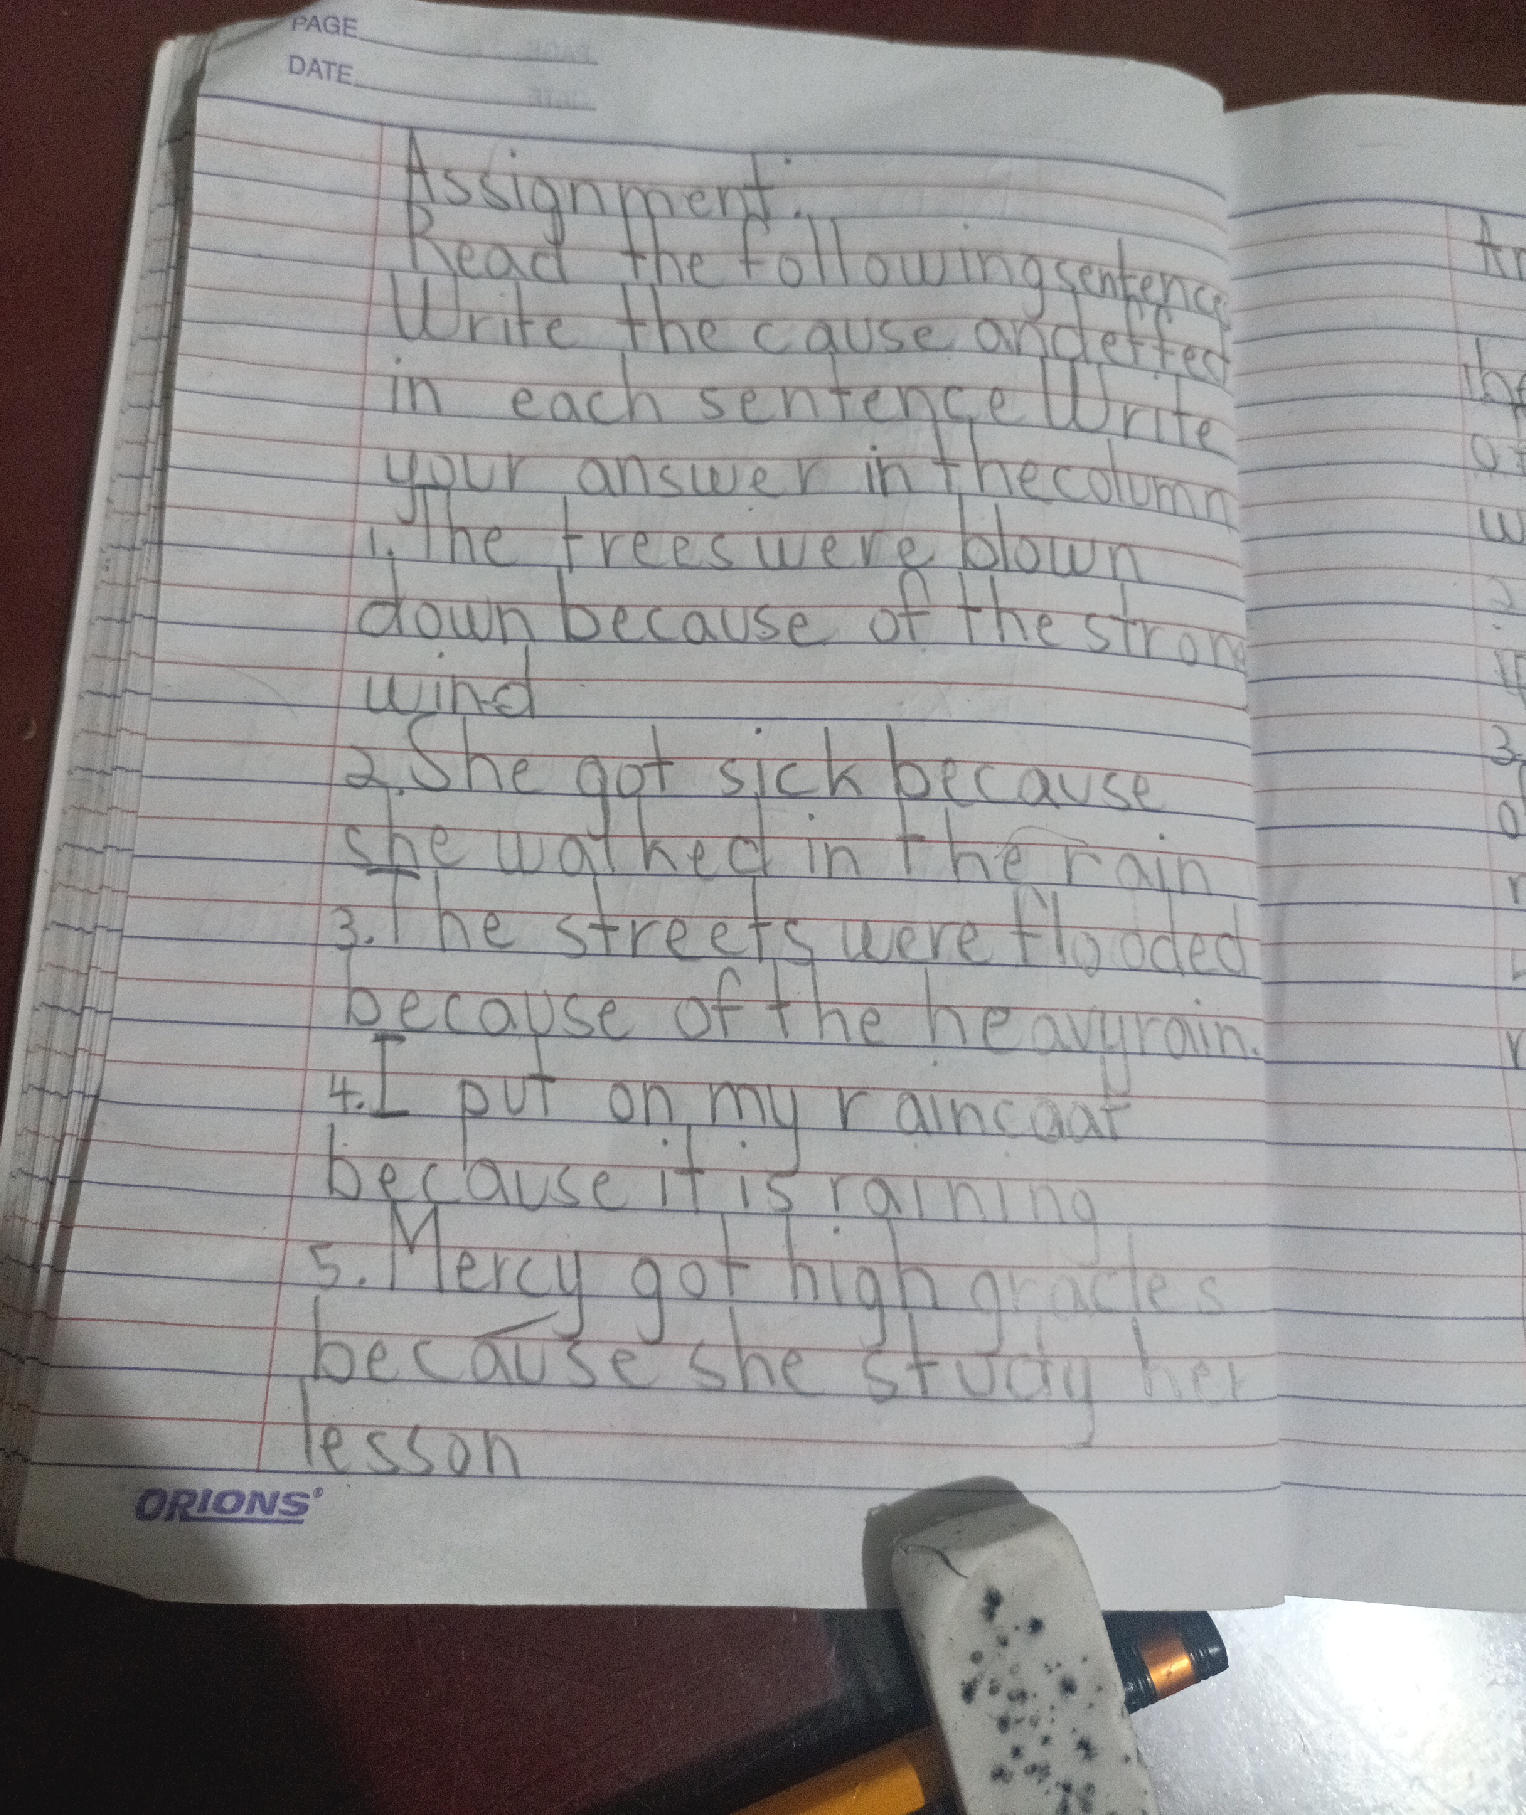 PAGE
DATE
Assignment.
Read the following sentence
Write the cause and effect
in each sentence Write
your answer in the column
1. The trees were blown
down because of the strong
wind
2. She got sick because
she walked in the rain
3. The streets were flooded
because of the heavy rain.
4. I put on my raincoat
because it is raining
5. Mercy got high grades
because she study her
lesson
ORIONS
3.